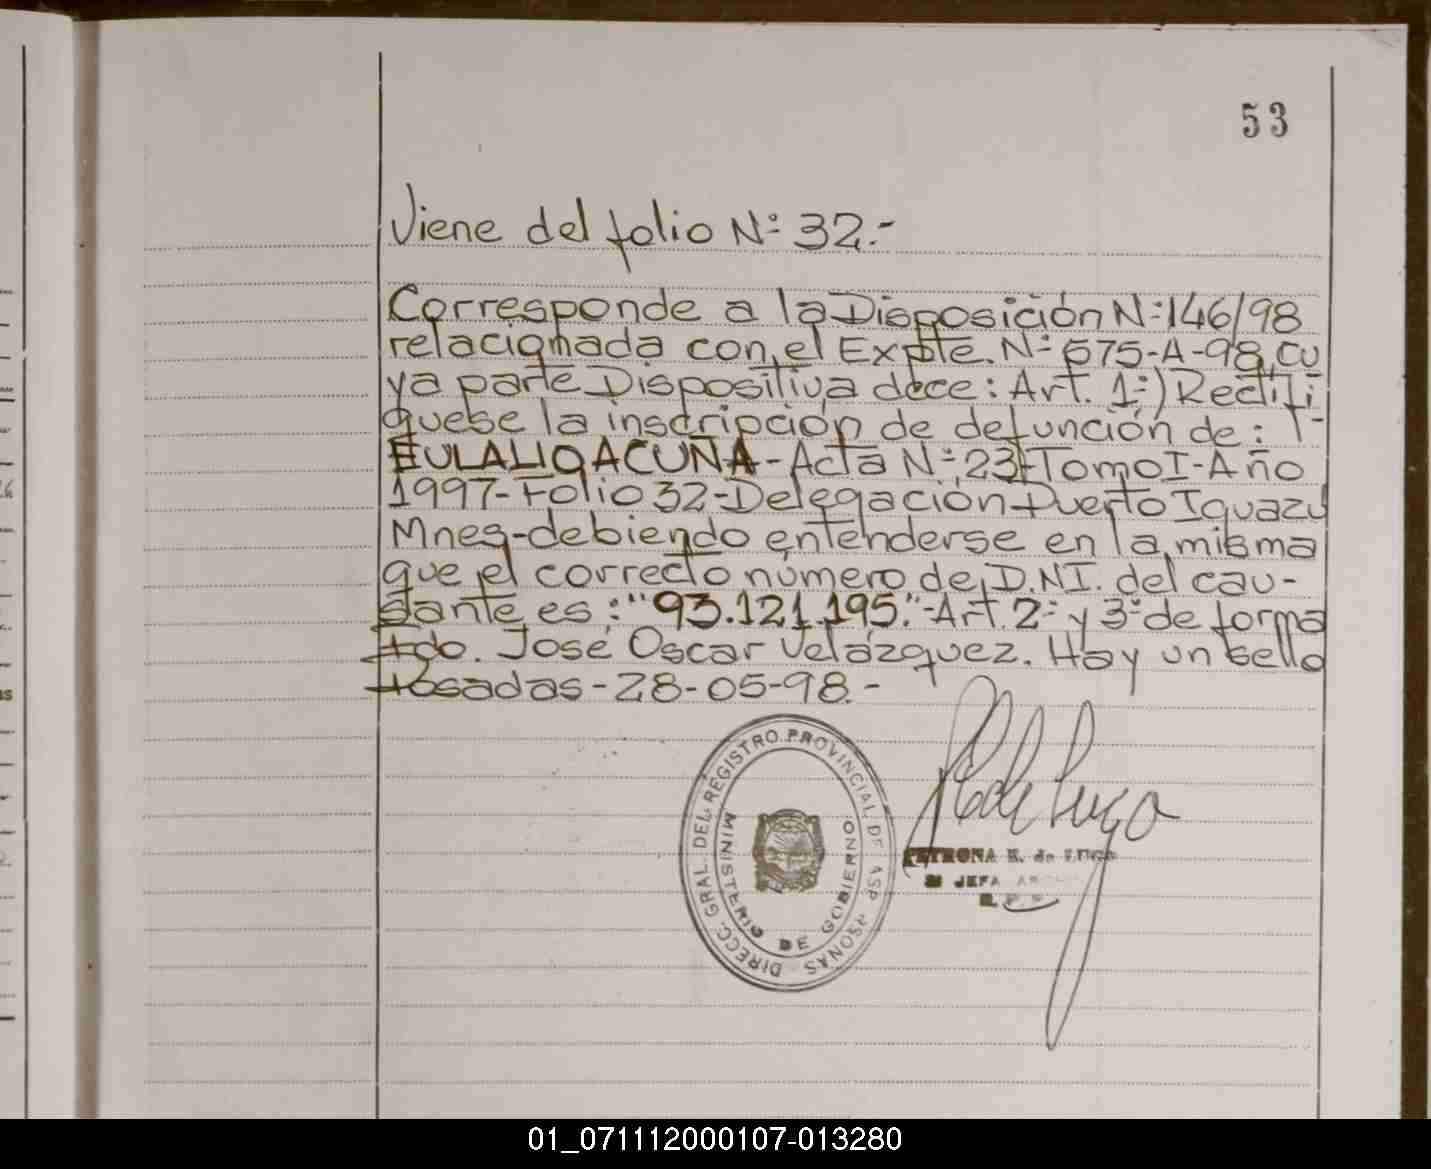 53
Viene del folio Nº 32.-
Corresponde a la Disposición Nº 146/98
relacionada con el Expte. Nº 575-A-98, cu
ya parte Dispositiva dece: Art. 1º) Rectifi
quese la inscripción de defunción de:
EULALIO ACUÑA - Acta Nº 23-Tomo I-Año
1997-Folio 32-Delegación Puerto Iguazú
Mnes-debiendo entenderse en la misma
que el correcto número de D.N.I. del cau-
sante es: "93.121.195."-Art. 2º y 3º de forma
Fdo. José Oscar Velázquez. Hay un sello
Posadas-28-05-98.-
DIRECC. GRAL. DEL REGISTRO PROVINCIAL DE ASP PERSONAS
MINISTERIO DE GOBIERNO
PETRONA E. de LUGO
JEFA
01_071112000107-013280